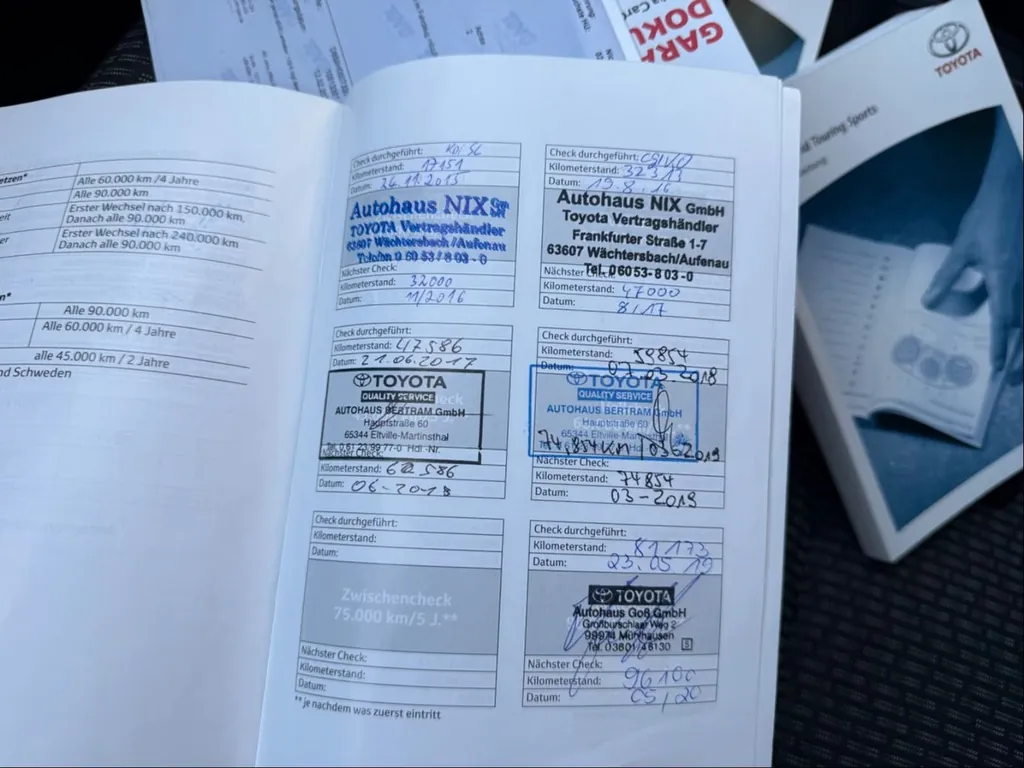 GARA
DOKU
TOYOTA
Touring Sports
etzen*
Alle 60.000 km /4 Jahre
Alle 90.000 km
Erster Wechsel nach 150.000 km.
Danach alle 90.000 km
Erster Wechsel nach 240.000 km
Danach alle 90.000 km
Alle 90.000 km
Alle 60.000 km / 4 Jahre
alle 45.000 km / 2 Jahre
nd Schweden
Check durchgeführt:
Kilometerstand: 17151
Datum: 26.11.2015
Autohaus NIX
TOYOTA Vertragshändler
63607 Wächtersbach/Aufenau
Telefon 0 60 53 / 8 03 - 0
Nächster Check:
Kilometerstand: 32000
Datum: 11/2016
Check durchgeführt:
Kilometerstand: 32313
Datum: 19.8.16
Autohaus NIX GmbH
Toyota Vertragshändler
Frankfurter Straße 1-7
63607 Wächtersbach/Aufenau
Tel. 06053-8 03 -0
Nächster Check:
Kilometerstand: 47000
Datum: 8/17
Check durchgeführt:
Kilometerstand: 47586
Datum: 21.06.2017
TOYOTA
QUALITY SERVICE
AUTOHAUS BERTRAM GmbH
Hauptstraße 60
65344 Eltville-Martinsthal
Tel. 0 61 23 99 77-0 Hdl.-Nr.
Nächster Check:
Kilometerstand: 62586
Datum: 06-2018
Check durchgeführt:
Kilometerstand: 59854
Datum: 07.03.2018
TOYOTA
QUALITY SERVICE
AUTOHAUS BERTRAM GmbH
Hauptstraße 60
65344 Eltville-Martinsthal
74,854km / 0362019
Nächster Check:
Kilometerstand: 74854
Datum: 03-2019
Check durchgeführt:
Kilometerstand:
Datum:
Zwischencheck
75.000 km/5 J.**
Nächster Check:
Kilometerstand:
Datum:
** je nachdem was zuerst eintritt
Check durchgeführt:
Kilometerstand: 81173
Datum: 23.05.19
TOYOTA
Autohaus Goß GmbH
Großburschlaer Weg 2
99974 Mühlhausen
Tel. 03601 46130
S
Nächster Check:
Kilometerstand: 96100
Datum: 05/20